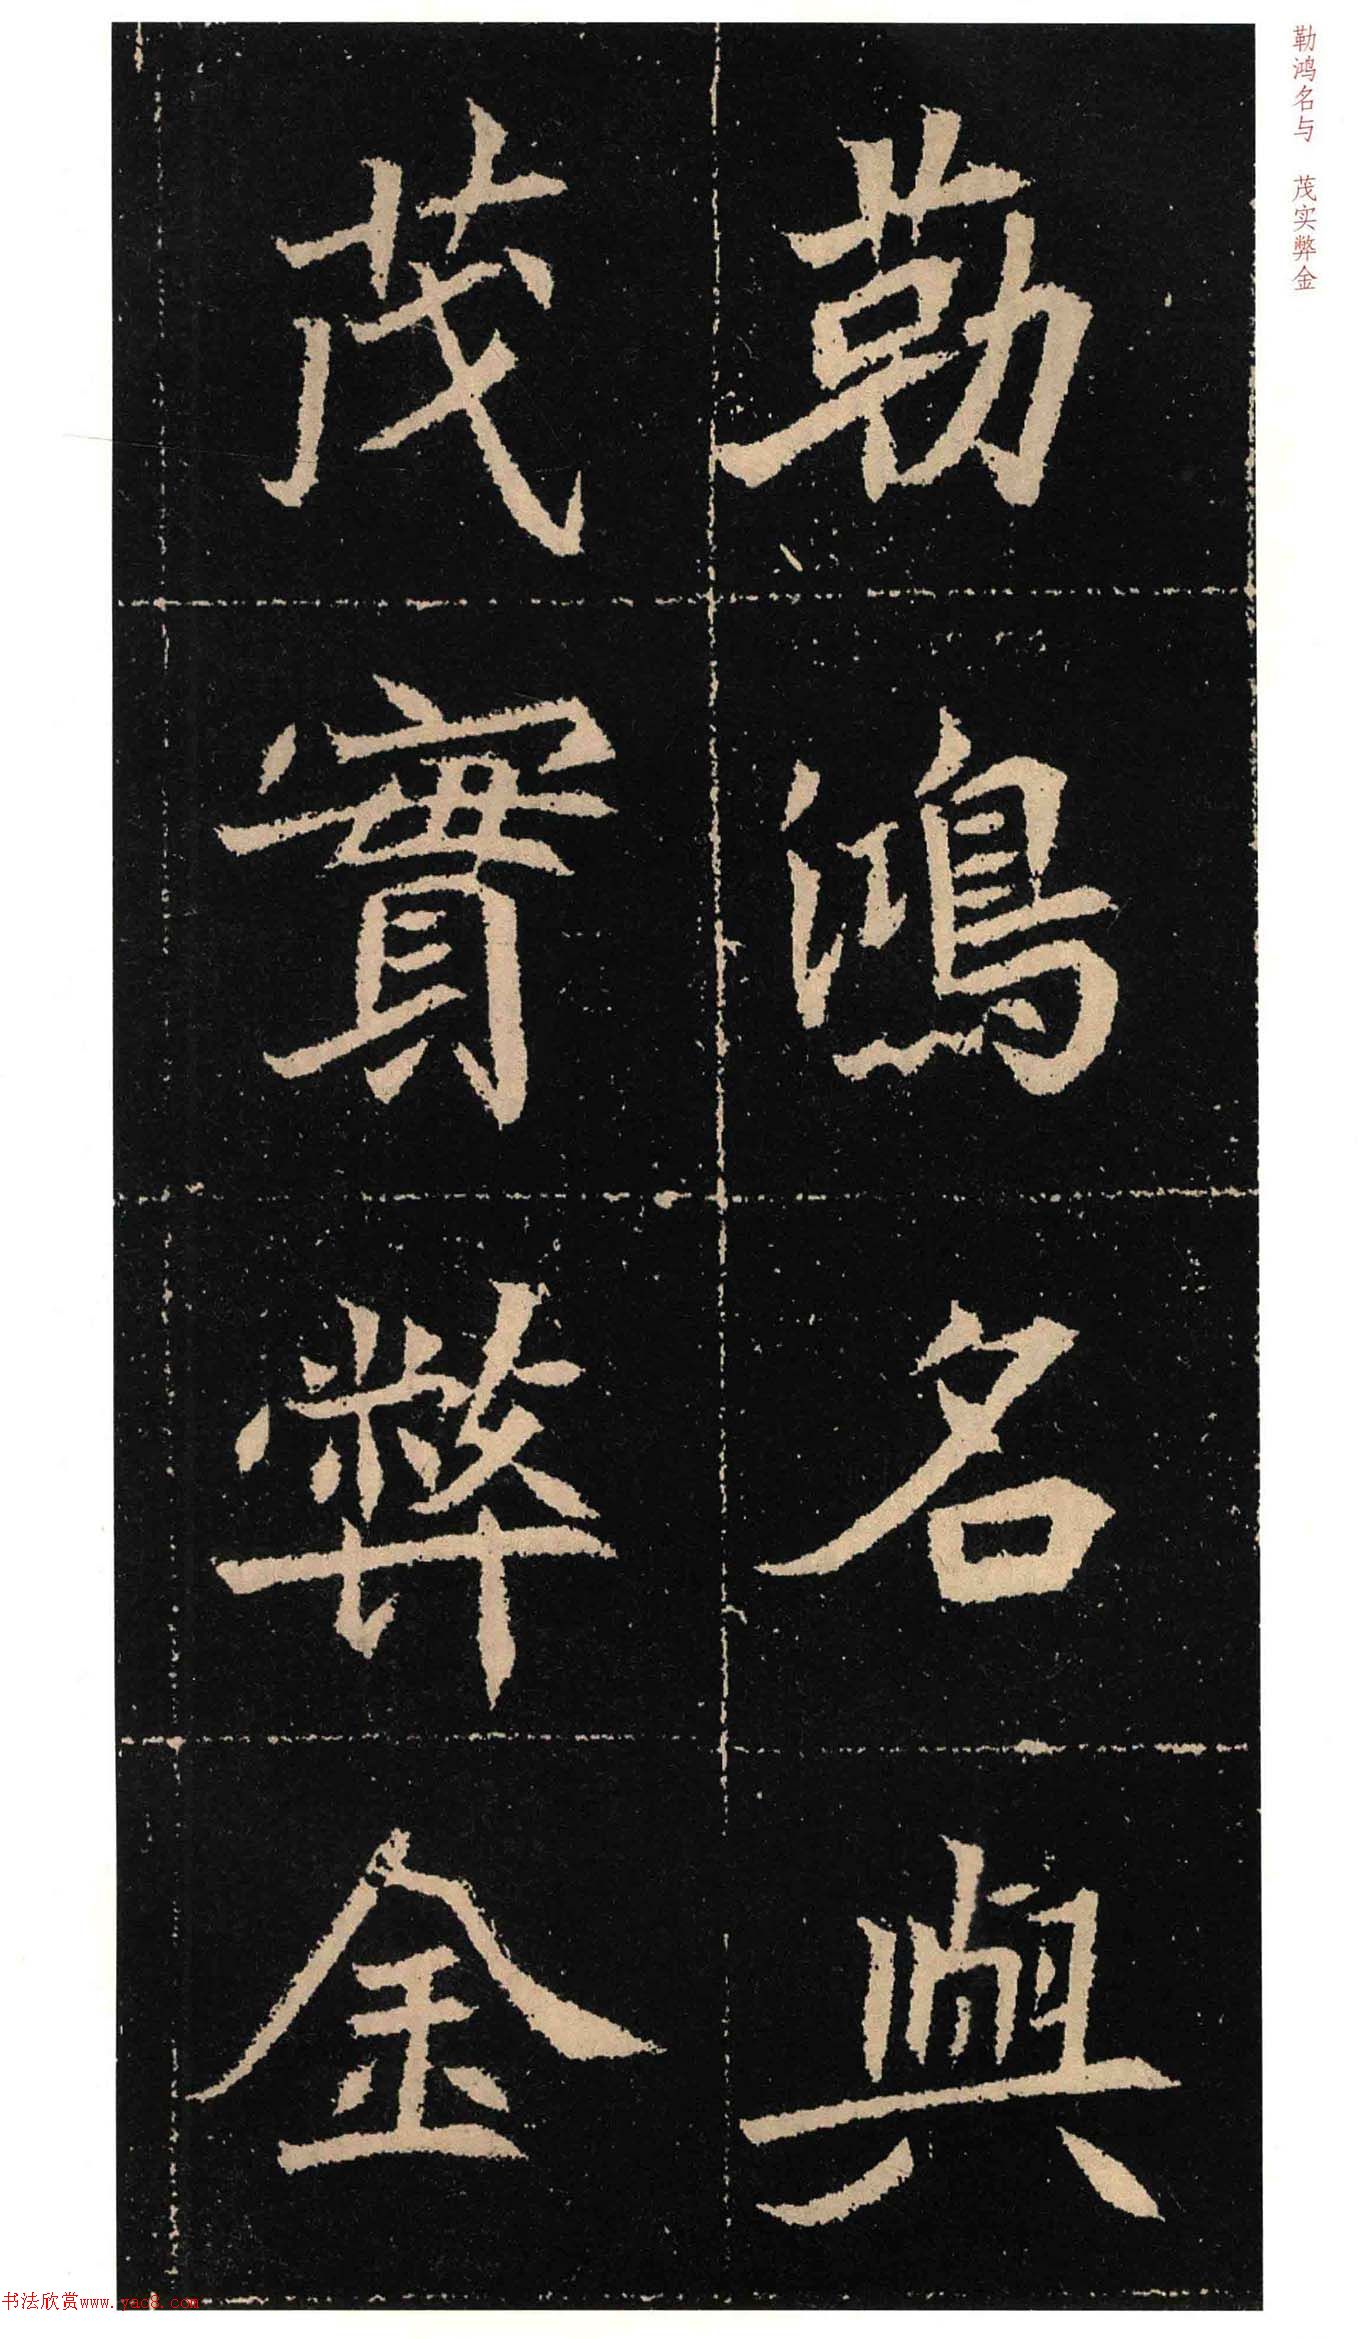 勒鸿名与 茂实弊金
勒鴻名與
茂實弊金
书法欣赏www.yac8.com